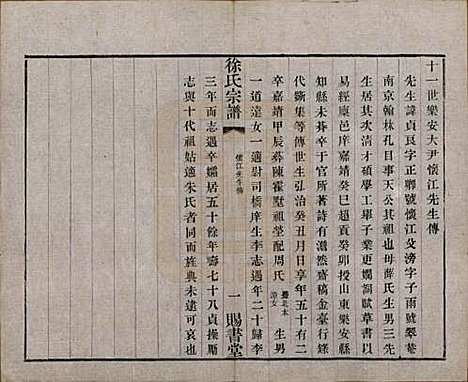 十一世樂安大尹懷江先生傳
先生諱貞良字正卿號懷江父滂字子雨號裂菴
南京翰林孔目事天公其祖也母薛氏生男三先
生居其次清才碩學工舉子業更嫻詞賦草書以
易經廩邑庠嘉靖癸巳超貢癸卯授山東樂安縣
知縣未朞卒于官所著詩有澹然齋稿金臺行錄
代斲集等傳世生弘治癸丑月日享年五十有二
卒嘉靖甲辰葬陳霍墅祖塋配周氏 生男
一道遠女一適尉司橋庠生李志遇年二十歸李
三年而志遇卒孀居五十餘年壽七十八貞操苦
志與十代祖姑適朱氏者同而旌典未逮可哀也
徐氏宗譜
懷江先生傳
一
賜書堂